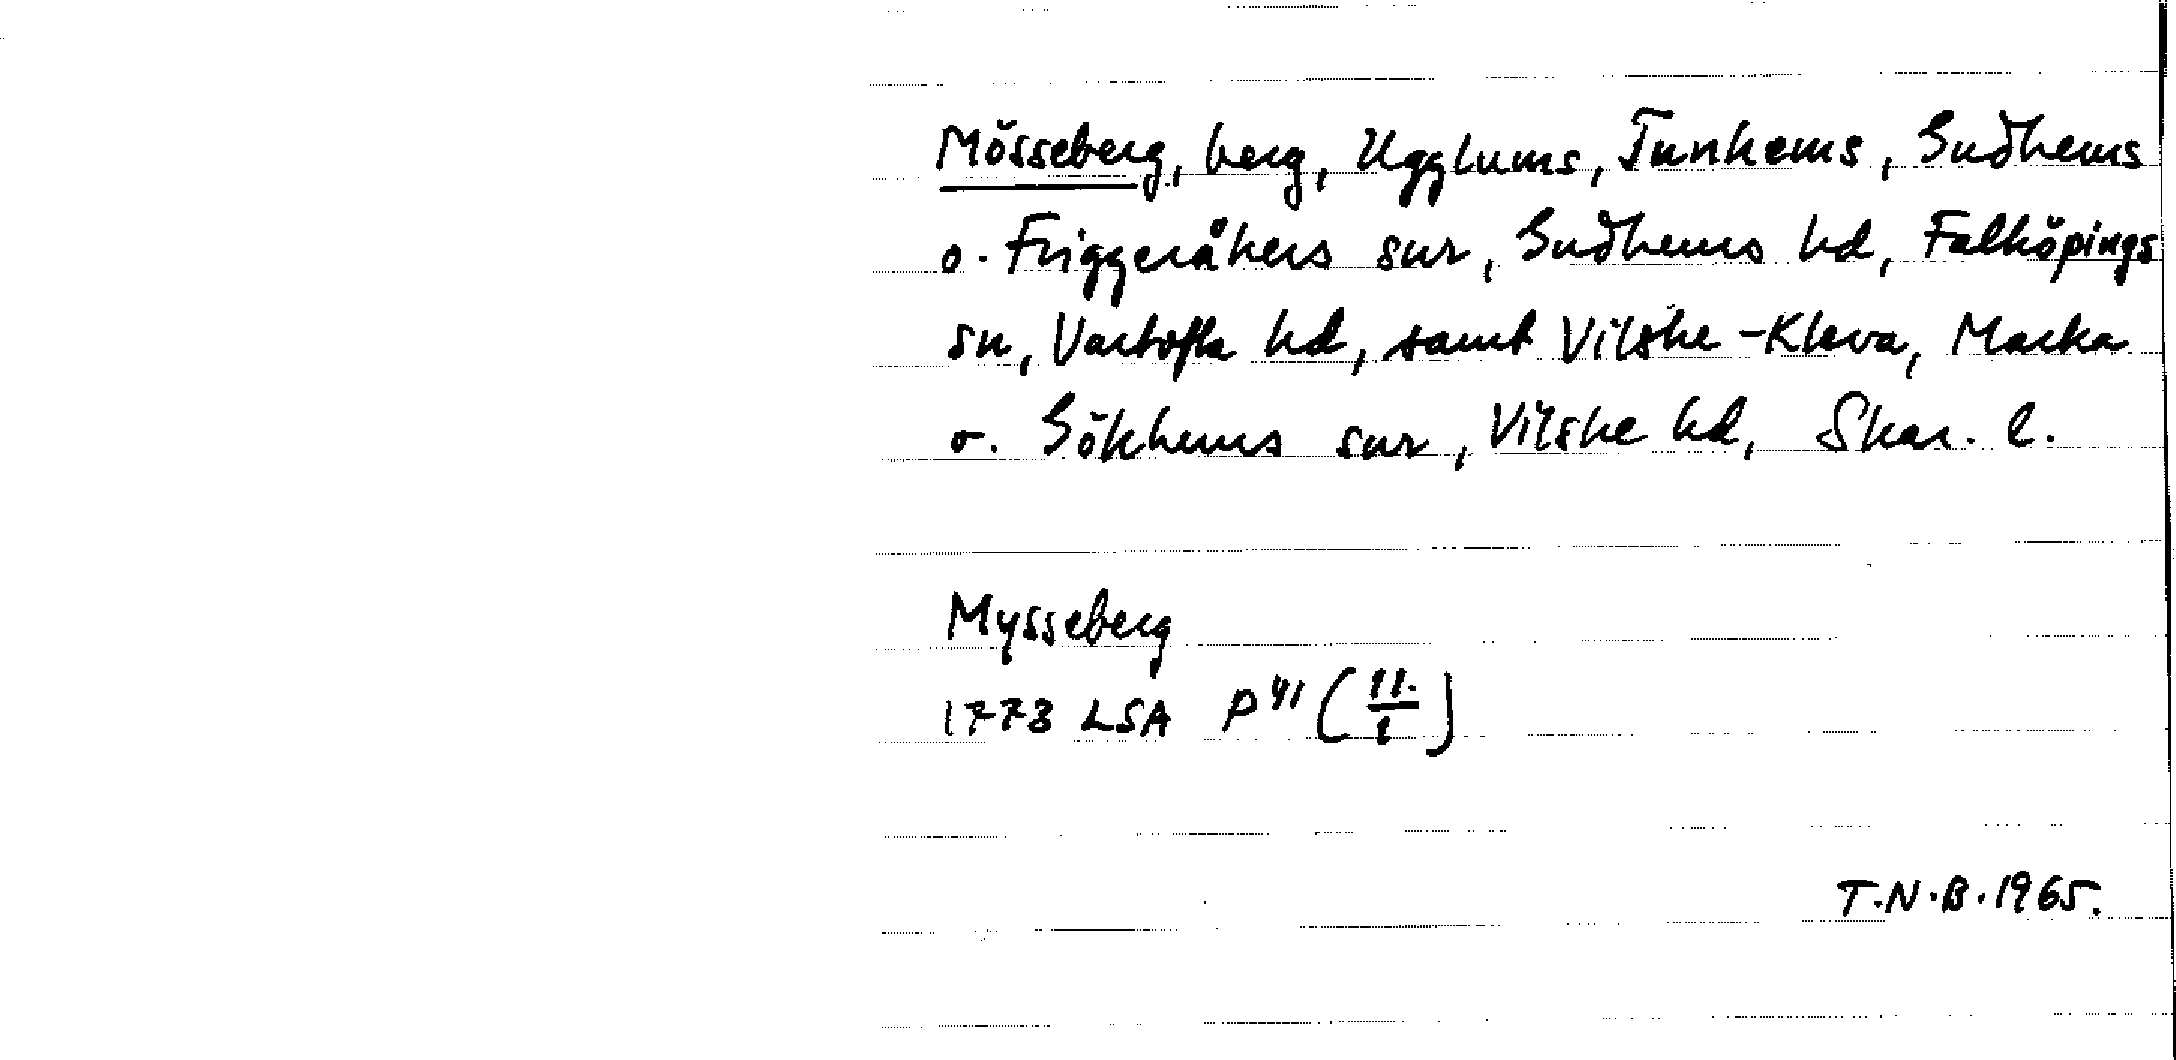 Mösseberg, berg, Ugglums, Tunhems, Gudhems
o. Friggeråkers snr, Gudhems hd, Falköpings
sn, Vartofta hd, samt Vilske-Kleva, Marka
o. Gökhems snr, Vilske hd, Skar. l.
Mysseberg
1773 LSA P 41 (11./1)
T.N.B. 1965.